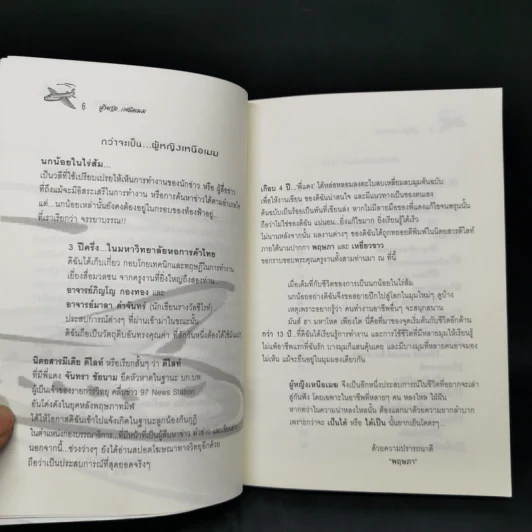 6
กว่าจะเป็น...ผู้หญิงเหนือเมม
นกน้อยในไร่ส้ม...
เป็นวลีที่ใช้เปรียบเปรยให้เห็นการทำงานของนักข่าว หรือ ผู้สื่อข่าว
ที่ถึงแม้จะมีอิสระเสรีในการทำงาน หรือการค้นหาข่าวได้ตามอำเภอใจ
แต่...นกน้อยเหล่านั้นยังคงต้องอยู่ในกรอบของท้องฟ้าอยู่...
ที่เราเรียกว่า จรรยาบรรณ!!
3 ปีครึ่ง...ในมหาวิทยาลัยหอการค้าไทย
ดิฉันได้เก็บเกี่ยว กอบโกยเทคนิคและทฤษฎีในการทำงาน
เยี่ยงสื่อมวลชน จากครูงานที่ยิ่งใหญ่ถึงสองท่าน
อาจารย์ภิญโญ กองทอง และ
อาจารย์มาลา คำจันทร์ (นักเขียนรางวัลซีไรท์)
ประสบการณ์ต่างๆ ที่ผ่านเข้ามาในขณะนั้น
ดิฉันถือเป็นวัตถุดิบอันทรงคุณค่า ที่สักวันหนึ่งต้องได้ใช้มัน
นิตยสารมีเดีย ดีไลท์ หรือเรียกสั้นๆ ว่า ดีไลท์
ที่มีพี่แดง จันทรา ชัยนาม ยึดหัวหาดในฐานะ บก.บห.
ผู้เป็นเจ้าของรายการวิทยุ คลื่นข่าว 97 News Station
อันโด่งดังในยุคหลังพฤษภาทมิฬ
ได้ให้โอกาสดิฉันเข้าไปแจ้งเกิดในฐานะลูกน้องก้นกุฏิ
ในตำแหน่งกองบรรณาธิการ...ที่มีหน้าที่เป็นผู้สื่อข่าว ทำข่าว และเขียนข่าว
นอกจากนี้...ช่วงว่างๆ ยังได้อ่านสปอตโฆษณาทางวิทยุอีกด้วย
ถือว่าเป็นประสบการณ์ที่สุดยอดจริงๆ
เกือบ 4 ปี...พี่แดง ได้หล่อหลอมลงตะไบลบเหลี่ยมลบมุมต้นฉบับ
เพื่อให้งานเขียน ของดิฉันน่าสนใจ และมีแนวทางเป็นของตนเอง
ต้นฉบับเป็นร้อยเป็นพันที่เขียนส่ง หากไม่มีลายมือของพี่แดงแก้ไขจนพรุนนั้น
ถือว่าไม่ใช่ของดิฉัน แน่นอน...ยิ่งแก้ไขมาก ยิ่งเรียนรู้ได้เร็ว
ไม่นานหลังจากนั้น ผลงานต่างๆ ของดิฉันได้ถูกทยอยตีพิมพ์ในนิตยสารดีไลท์
ภายใต้นามปากกา พฤษภา และ เหยี่ยวขาว
ขอกราบขอบพระคุณครูงานทั้งสามท่านมา ณ ที่นี้
เมื่อเต็มที่กับชีวิตของการเป็นนกน้อยในไร่ส้ม
นกน้อยอย่างดิฉันจึงขอสยายปีกไปสู่โลกในมุมใหม่ๆ ดูบ้าง
เหตุเพราะอยากรู้ว่า คนทำงานอาชีพอื่นๆ จะสนุกสนาน
มันส์ ฮา มหาโหด เพียงใด นี่คือที่มาของจุดเริ่มต้นกับชีวิตอีกด้าน
กว่า 13 ปี...ที่ดิฉันได้เรียนรู้การทำงาน และการใช้ชีวิตที่มีหลายมุมให้เรียนรู้
ไม่แพ้อาชีพแรกที่ฉันรัก บางมุมก็แสนคุ้นเคย และมีบางมุมที่หลายคนอาจมอง
ไม่เห็น แม้จะยืนอยู่ในมุมมองเดียวกัน
ผู้หญิงเหนือเมม จึงเป็นอีกหนึ่งประสบการณ์ในชีวิตที่อยากจะเล่า
สู่กันฟัง โดยเฉพาะในอาชีพที่หลายๆ คน หลงใหล ใฝ่ฝัน
หากทว่าในความน่าหลงใหลนั้น ต้องแลกมาด้วยความยากลำบาก
เพราะกว่าจะ เป็นได้ หรือ ได้เป็น นั้นยากเย็นใดตรๆ...
ด้วยความปรารถนาดี
"พฤษภา"